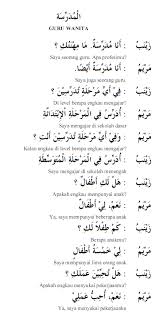 الْمُدَرِّسَةُ
GURU WANITA
زَيْنَبُ : أَنَا مُدَرِّسَةٌ. مَا مِهْنَتُكِ ؟
Saya seorang guru. Apa profesimu?
مَرْيَمُ : أَنَا مُدَرِّسَةٌ أَيْضًا.
Saya juga seorang guru
زَيْنَبُ : فِي أَيِّ مَرْحَلَةٍ تُدَرِّسِيْنَ ؟
Di level berapa engkau mengajar?
مَرْيَمُ : أُدَرِّسُ فِي الْمَرْحَلَةِ الْاِبْتِدَائِيَّةِ
Saya mengajar di sekolah dasar
مَرْيَمُ : وَفِي أَيِّ مَرْحَلَةٍ تُدَرِّسِيْنَ أَنْتِ ؟
Kalau engkau di level berapa engkau mengajar?
زَيْنَبُ : أُدَرِّسُ فِي الْمَرْحَلَةِ الْمُتَوَسِّطَةِ
Saya mengajar di sekolah menengah
زَيْنَبُ : هَلْ لَكِ أَطْفَالٌ ؟
Apakah engkau mempunyai anak?
مَرْيَمُ : نَعَمْ، لِي أَطْفَالٌ
Ya, saya mempunyai beberapa anak
زَيْنَبُ : كَمْ طِفْلًا لَكِ ؟
Berapa anakmu?
مَرْيَمُ : لِي خَمْسَةُ أَطْفَالٍ
Saya mempunyai lima orang anak
زَيْنَبُ : هَلْ تُحِبِّيْنَ عَمَلَكِ ؟
Apakah engkau menyukai pekerjaanmu?
مَرْيَمُ : نَعَمْ، أُحِبُّ عَمَلِيْ
Ya, saya menyukai pekerjaanku